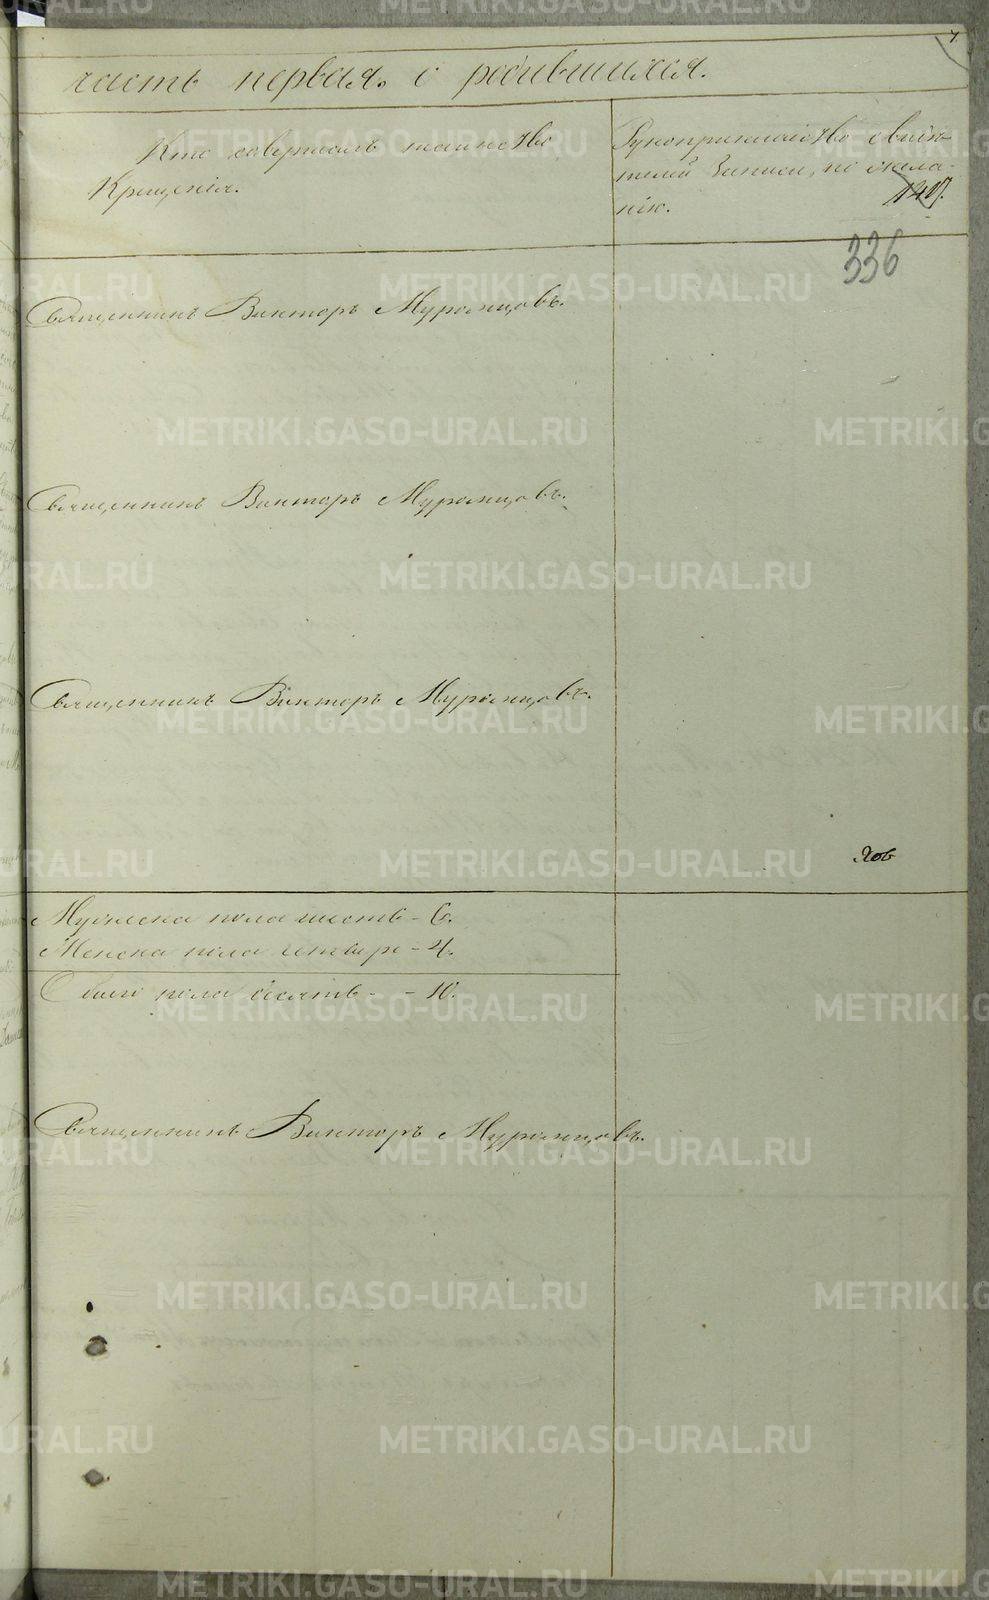 7
часть первая. о родившихся.
Кто совершалъ таинство
Крещенія.
Рукоприкладство свидѣ-
телей записи, по жела-
нію.
336
Священникъ Викторъ Муромцовъ.
Священникъ Викторъ Муромцовъ.
Священникъ Викторъ Муромцовъ.
Мужеска пола шесть - 6.
Женска пола четыре - 4.
Обоего пола десять - - 10.
Священникъ Викторъ Муромцовъ.
METRIKI.GASO-URAL.RU